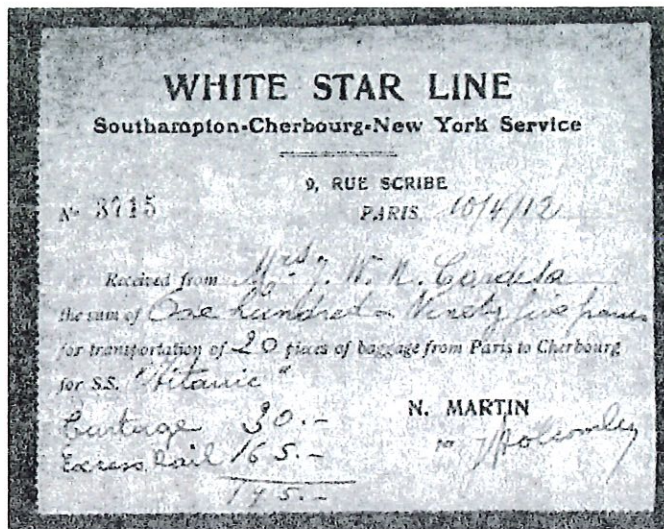 WHITE STAR LINE
Southampton-Cherbourg-New York Service
9, RUE SCRIBE
No 3715 PARIS, 10/4/12
Received from Mrs. J. W. M. Cardeza
the sum of One hundred & Ninety five francs
for transportation of 20 pieces of baggage from Paris to Cherbourg
for S.S. "Titanic"
Cartage 30.-
N. MARTIN
Excess rail 165.-
per
195.-